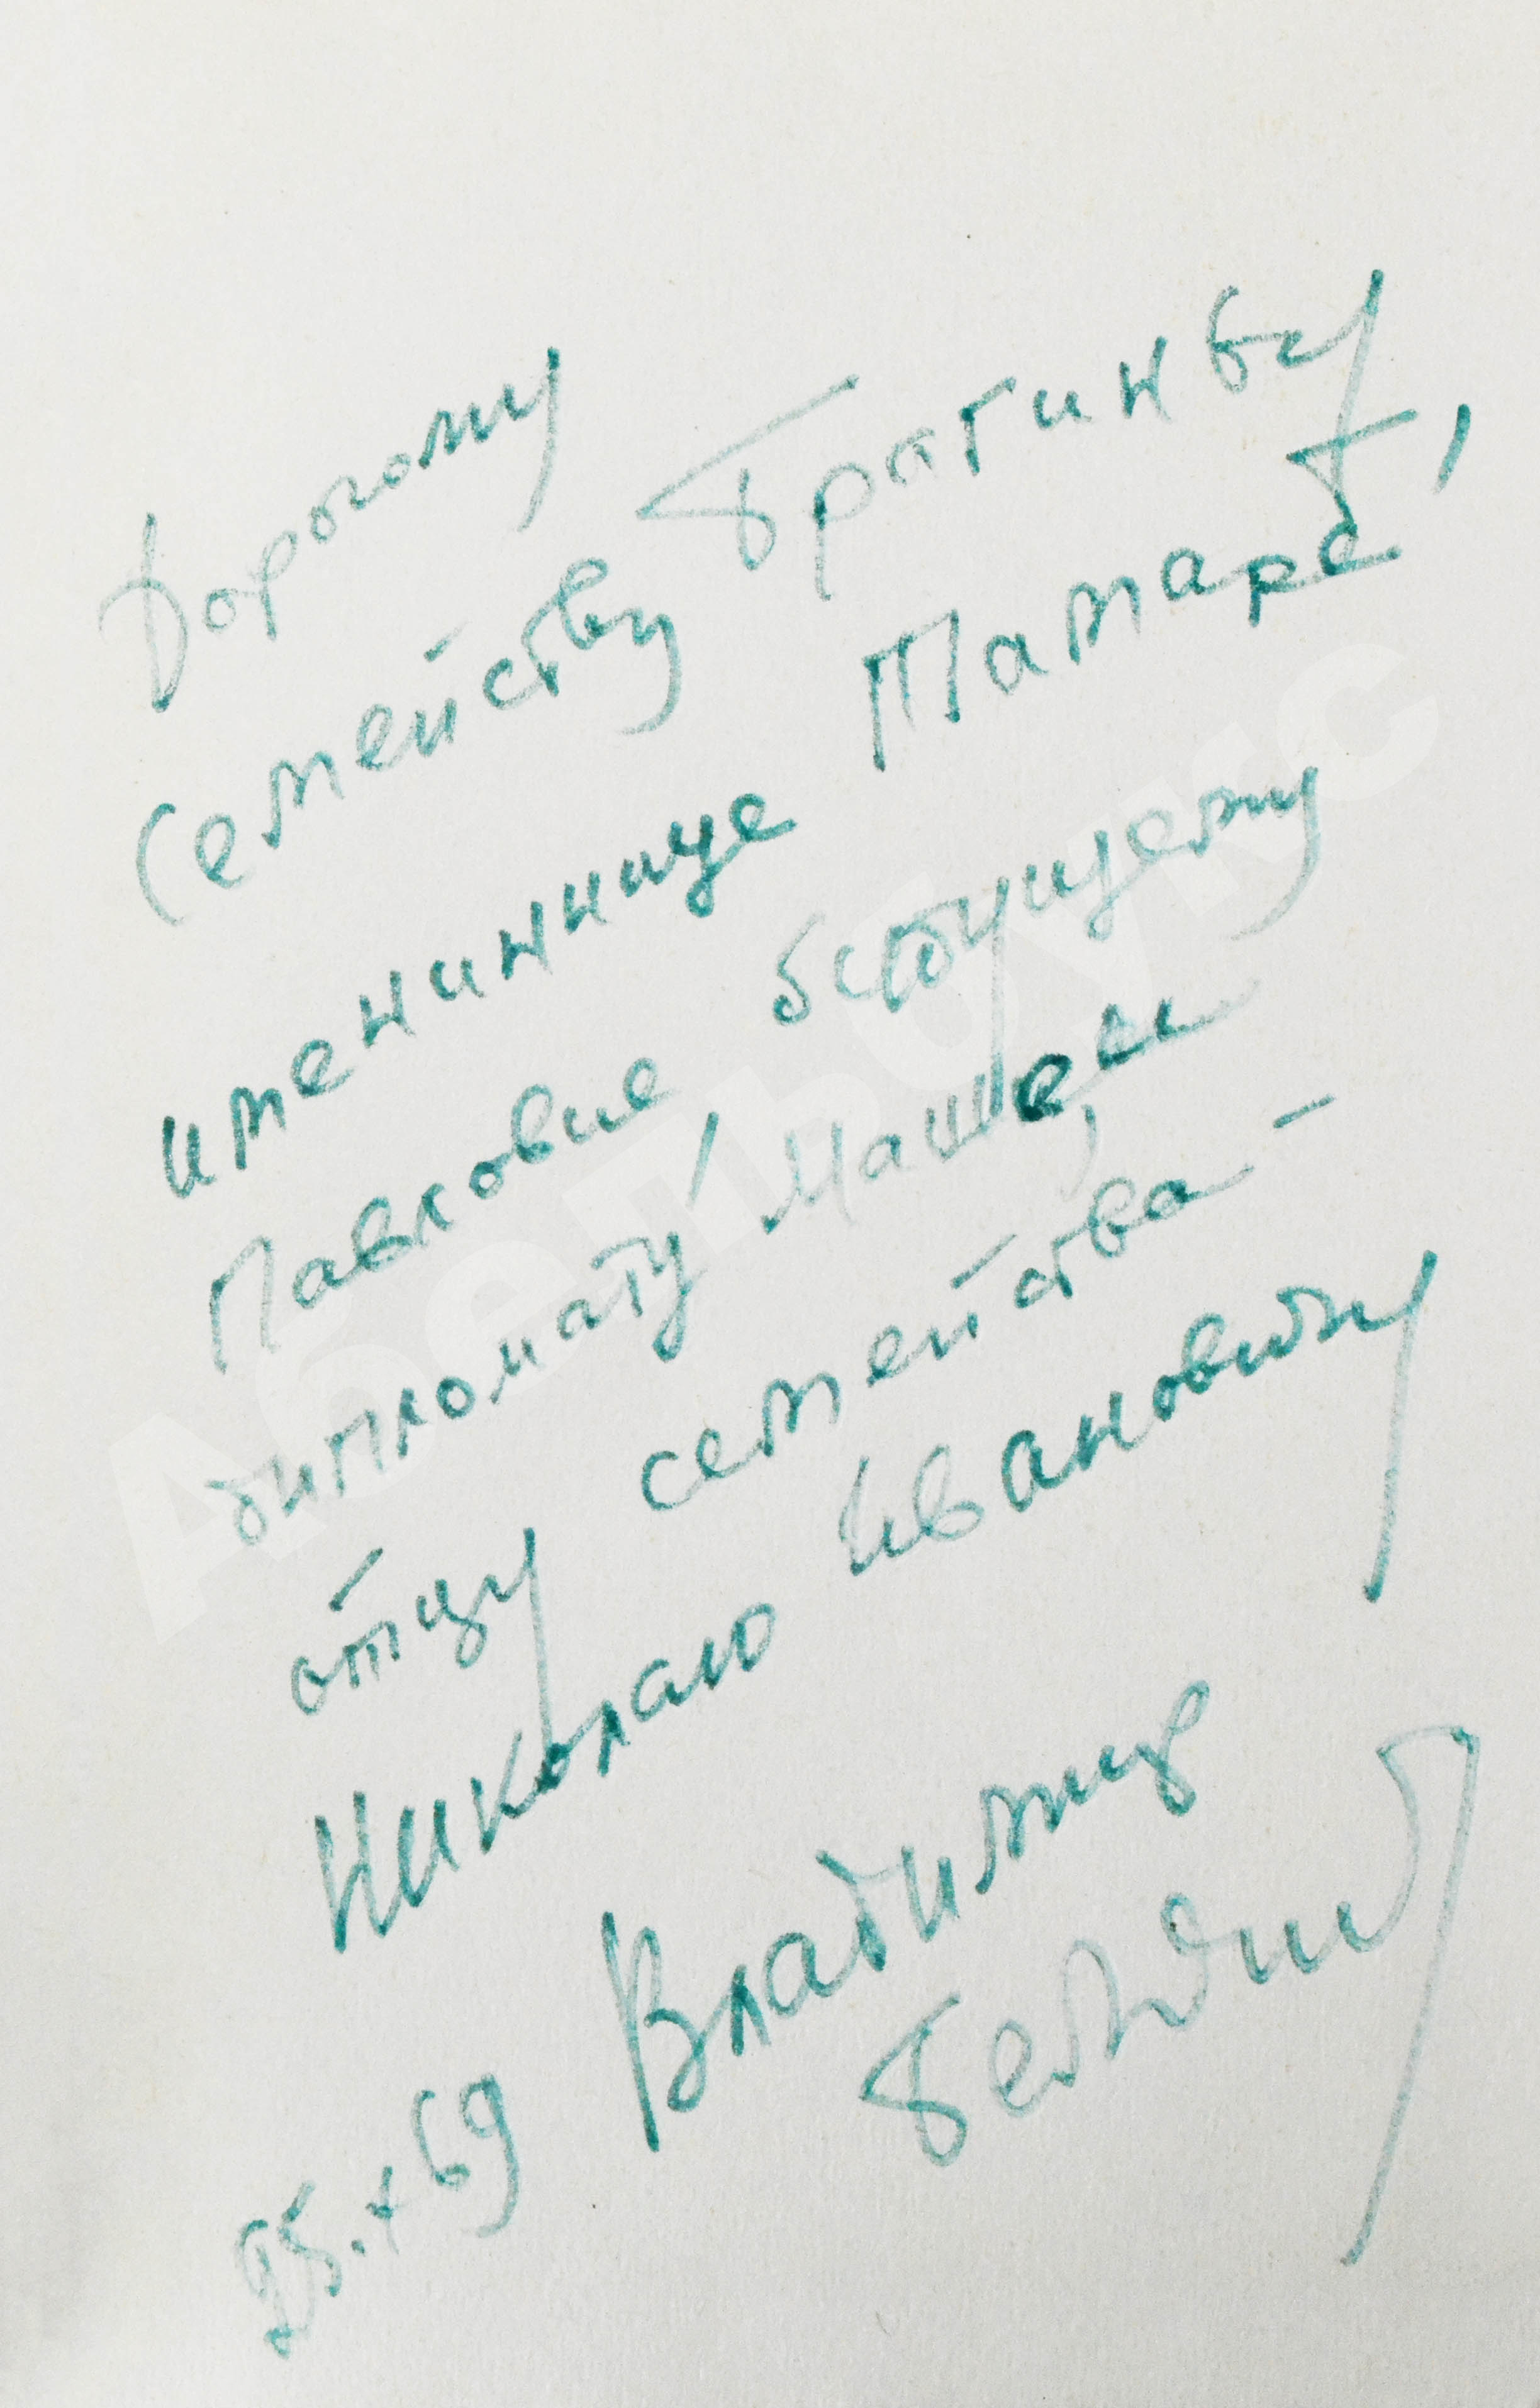 Дорогому
семейству Брагиных
имениннице Тамаре,
Павловне будущему
дипломату Машеньке,
отцу семейства –
Николаю Ивановичу
Владимир
25.X 69
АбельБукс